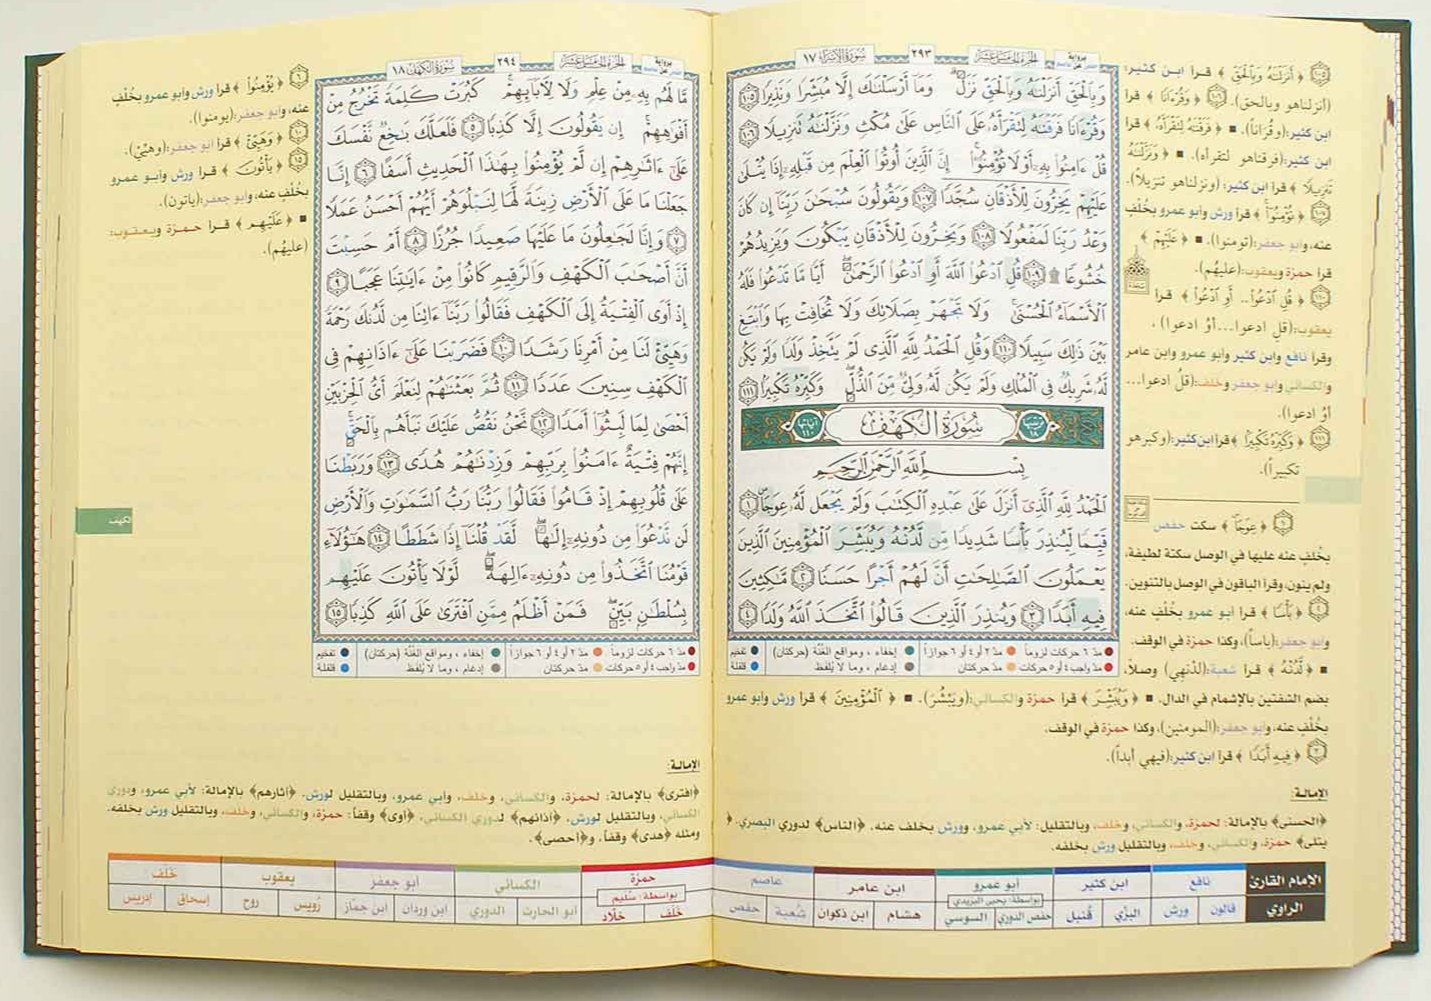 برواية
حفص عن عاصم
الجزء الخامس عشر
٢٩٣
سورة الإسراء ١٧
وَبِٱلْحَقِّ أَنزَلْنَٰهُ وَبِٱلْحَقِّ نَزَلَ ۗ وَمَآ أَرْسَلْنَٰكَ إِلَّا مُبَشِّرًا وَنَذِيرًا ١٠٥
وَقُرْءَانًا فَرَقْنَٰهُ لِتَقْرَأَهُۥ عَلَى ٱلنَّاسِ عَلَىٰ مُكْثٍ وَنَزَّلْنَٰهُ تَنزِيلًا ١٠٦
قُلْ ءَامِنُوا۟ بِهِۦٓ أَوْ لَا تُؤْمِنُوٓا۟ ۚ إِنَّ ٱلَّذِينَ أُوتُوا۟ ٱلْعِلْمَ مِن قَبْلِهِۦٓ إِذَا يُتْلَىٰ
عَلَيْهِمْ يَخِرُّونَ لِلْأَذْقَانِ سُجَّدًا ١٠٧ وَيَقُولُونَ سُبْحَٰنَ رَبِّنَآ إِن كَانَ
وَعْدُ رَبِّنَا لَمَفْعُولًا ١٠٨ وَيَخِرُّونَ لِلْأَذْقَانِ يَبْكُونَ وَيَزِيدُهُمْ
خُشُوعًا ۩ ١٠٩ قُلِ ٱدْعُوا۟ ٱللَّهَ أَوِ ٱدْعُوا۟ ٱلرَّحْمَٰنَ ۖ أَيًّا مَّا تَدْعُوا۟ فَلَهُ
ٱلْأَسْمَآءُ ٱلْحُسْنَىٰ ۚ وَلَا تَجْهَرْ بِصَلَاتِكَ وَلَا تُخَافِتْ بِهَا وَٱبْتَغِ
بَيْنَ ذَٰلِكَ سَبِيلًا ١١٠ وَقُلِ ٱلْحَمْدُ لِلَّهِ ٱلَّذِى لَمْ يَتَّخِذْ وَلَدًا وَلَمْ يَكُن
لَّهُۥ شَرِيكٌ فِى ٱلْمُلْكِ وَلَمْ يَكُن لَّهُۥ وَلِىٌّ مِّنَ ٱلذُّلِّ ۖ وَكَبِّرْهُ تَكْبِيرًا ١١١
ترتيبها ١٨ سُورَةُ الكَهْفِ آياتها ١١٠
بِسْمِ ٱللَّهِ ٱلرَّحْمَٰنِ ٱلرَّحِيمِ
ٱلْحَمْدُ لِلَّهِ ٱلَّذِىٓ أَنزَلَ عَلَىٰ عَبْدِهِ ٱلْكِتَٰبَ وَلَمْ يَجْعَل لَّهُۥ عِوَجَا ۜ ١
قَيِّمًا لِّيُنذِرَ بَأْسًا شَدِيدًا مِّن لَّدُنْهُ وَيُبَشِّرَ ٱلْمُؤْمِنِينَ ٱلَّذِينَ
يَعْمَلُونَ ٱلصَّٰلِحَٰتِ أَنَّ لَهُمْ أَجْرًا حَسَنًا ٢ مَّٰكِثِينَ
فِيهِ أَبَدًا ٣ وَيُنذِرَ ٱلَّذِينَ قَالُوا۟ ٱتَّخَذَ ٱللَّهُ وَلَدًا ٤
مدّ ٦ حركات لزوماً مدّ ٢ أو ٤ أو ٦ جوازاً إخفاء ، ومواقع الغُنَّة (حركتان) تفخيم
مدّ واجب ٤ أو ٥ حركات مدّ حركتان إدغام ، وما لا يُلفظ قلقلة
١٠٥ ﴿ أَنزَلْنَٰهُ وَبِٱلْحَقِّ ﴾ قرأ ابن كثير:
(أنزلناهو وبالحق). ١٠٦ ﴿ وَقُرْءَانًا ﴾ قرأ
ابن كثير:(وقُراناً). ■ ﴿ فَرَقْنَٰهُ لِتَقْرَأَهُۥ ﴾ قرأ
ابن كثير:(فرقناهو لتقرأه). ■ ﴿ وَنَزَّلْنَٰهُ
تَنزِيلًا ﴾ قرأ ابن كثير: (ونزلناهو تنزيلاً).
١٠٧ ﴿ تُؤْمِنُوٓا۟ ﴾ قرأ ورش وأبو عمرو بخُلْفٍ
عنه، وأبو جعفر:(تومنوا). ■ ﴿ عَلَيْهِمْ ﴾
قرأ حمزة ويعقوب:(عليهُم).
١١٠ ﴿ قُلِ ٱدْعُوا۟.. أَوِ ٱدْعُوا۟ ﴾ قرأ
يعقوب:(قلِ ادعوا...أوُ ادعوا) .
وقرأ نافع وابن كثير وأبو عمرو وابن عامر
والكسائي وأبو جعفر وخلف:(قلُ ادعوا...
أوُ ادعوا).
١١١ ﴿ وَكَبِّرْهُ تَكْبِيرًا ﴾ قرأ ابن كثير:(وكبرهو
تكبيراً).
١ ﴿ عِوَجَا ۜ ﴾ سكت حفص
بخُلفٍ عنه عليها في الوصل سكتة لطيفة،
ولم ينون، وقرأ الباقون في الوصل بالتنوين.
٢ ﴿ بَأْسًا ﴾ قرأ أبو عمرو بخُلْفٍ عنه،
وأبو جعفر:(باساً)، وكذا حمزة في الوقف.
■ ﴿ لَّدُنْهُ ﴾ قرأ شعبة:(لدْنِهي) وصلاً،
بضم الشفتين بالإشمام في الدال. ■ ﴿ وَيُبَشِّرَ ﴾ قرأ حمزة والكسائي:(ويَبْشُرَ). ■ ﴿ ٱلْمُؤْمِنِينَ ﴾ قرأ ورش وأبو عمرو
بخُلْفٍ عنه، وأبو جعفر:(المومنين)، وكذا حمزة في الوقف.
٣ ﴿ فِيهِ أَبَدًا ﴾ قرأ ابن كثير:(فيهي أبداً).
الإمالة:
﴿الحسنى﴾ بالإمالة: لحمزة، والكسائي، وخلف، وبالتقليل: لأبي عمرو، وورش بخلف عنه. ﴿الناس﴾ لدوري البصري. ﴿
يتلى﴾ حمزة، والكسائي، وخلف، وبالتقليل ورش بخلفه.
الإمام القارئ نافع ابن كثير أبو عمرو ابن عامر عاصم
بواسطة: يحيى اليزيدي
الراوي قالون ورش البزّي قُنبل حفص الدوري السوسي هشام ابن ذكوان شُعبة حفص
برواية
حفص عن عاصم
الجزء الخامس عشر
٢٩٤
سورة الكهف ١٨
مَّا لَهُم بِهِۦ مِنْ عِلْمٍ وَلَا لِءَابَآئِهِمْ ۚ كَبُرَتْ كَلِمَةً تَخْرُجُ مِنْ
أَفْوَٰهِهِمْ ۚ إِن يَقُولُونَ إِلَّا كَذِبًا ٥ فَلَعَلَّكَ بَٰخِعٌ نَّفْسَكَ
عَلَىٰٓ ءَاثَٰرِهِمْ إِن لَّمْ يُؤْمِنُوا۟ بِهَٰذَا ٱلْحَدِيثِ أَسَفًا ٦ إِنَّا
جَعَلْنَا مَا عَلَى ٱلْأَرْضِ زِينَةً لَّهَا لِنَبْلُوَهُمْ أَيُّهُمْ أَحْسَنُ عَمَلًا
٧ وَإِنَّا لَجَٰعِلُونَ مَا عَلَيْهَا صَعِيدًا جُرُزًا ٨ أَمْ حَسِبْتَ
أَنَّ أَصْحَٰبَ ٱلْكَهْفِ وَٱلرَّقِيمِ كَانُوا۟ مِنْ ءَايَٰتِنَا عَجَبًا ٩
إِذْ أَوَى ٱلْفِتْيَةُ إِلَى ٱلْكَهْفِ فَقَالُوا۟ رَبَّنَآ ءَاتِنَا مِن لَّدُنكَ رَحْمَةً
وَهَيِّئْ لَنَا مِنْ أَمْرِنَا رَشَدًا ١٠ فَضَرَبْنَا عَلَىٰٓ ءَاذَانِهِمْ فِى
ٱلْكَهْفِ سِنِينَ عَدَدًا ١١ ثُمَّ بَعَثْنَٰهُمْ لِنَعْلَمَ أَىُّ ٱلْحِزْبَيْنِ
أَحْصَىٰ لِمَا لَبِثُوٓا۟ أَمَدًا ١٢ نَّحْنُ نَقُصُّ عَلَيْكَ نَبَأَهُم بِٱلْحَقِّ ۚ
إِنَّهُمْ فِتْيَةٌ ءَامَنُوا۟ بِرَبِّهِمْ وَزِدْنَٰهُمْ هُدًى ١٣ وَرَبَطْنَا
عَلَىٰ قُلُوبِهِمْ إِذْ قَامُوا۟ فَقَالُوا۟ رَبُّنَا رَبُّ ٱلسَّمَٰوَٰتِ وَٱلْأَرْضِ
لَن نَّدْعُوَا۟ مِن دُونِهِۦٓ إِلَٰهًا ۖ لَّقَدْ قُلْنَآ إِذًا شَطَطًا ١٤ هَٰٓؤُلَآءِ
قَوْمُنَا ٱتَّخَذُوا۟ مِن دُونِهِۦٓ ءَالِهَةً ۖ لَّوْلَا يَأْتُونَ عَلَيْهِم
بِسُلْطَٰنٍۭ بَيِّنٍ ۖ فَمَنْ أَظْلَمُ مِمَّنِ ٱفْتَرَىٰ عَلَى ٱللَّهِ كَذِبًا ١٥
مدّ ٦ حركات لزوماً مدّ ٢ أو ٤ أو ٦ جوازاً إخفاء ، ومواقع الغُنَّة (حركتان) تفخيم
مدّ واجب ٤ أو ٥ حركات مدّ حركتان إدغام ، وما لا يُلفظ قلقلة
٦ ﴿ يُؤْمِنُوا۟ ﴾ قرأ ورش وأبو عمرو بخُلْفٍ
عنه، وأبو جعفر:(يومنوا).
١٠ ﴿ وَهَيِّئْ ﴾ قرأ أبو جعفر:(وهيّيْ).
١٥ ﴿ يَأْتُونَ ﴾ قرأ ورش وأبو عمرو
بخُلْفٍ عنه، وأبو جعفر:(ياتون).
■ ﴿ عَلَيْهِم ﴾ قرأ حمزة ويعقوب:
(عليهُم).
الكهف
الإمالة:
﴿افترى﴾ بالإمالة: لحمزة، والكسائي، وخلف، وأبي عمرو، وبالتقليل لورش. ﴿آثارهم﴾ بالإمالة: لأبي عمرو، ودوري
الكسائي، وبالتقليل لورش. ﴿آذانهم﴾ لدوري الكسائي، ﴿أوى﴾ وقفاً: حمزة، والكسائي، وخلف، وبالتقليل ورش بخلفه.
ومثله ﴿هدى﴾ وقفاً، و﴿أحصى﴾.
حمزة الكسائي أبو جعفر يعقوب خَلَف
بواسطة: سُليم
خَلَف خلّاد أبو الحارث الدوري ابن وردان ابن جمّاز رُويس روح إسحاق إدريس